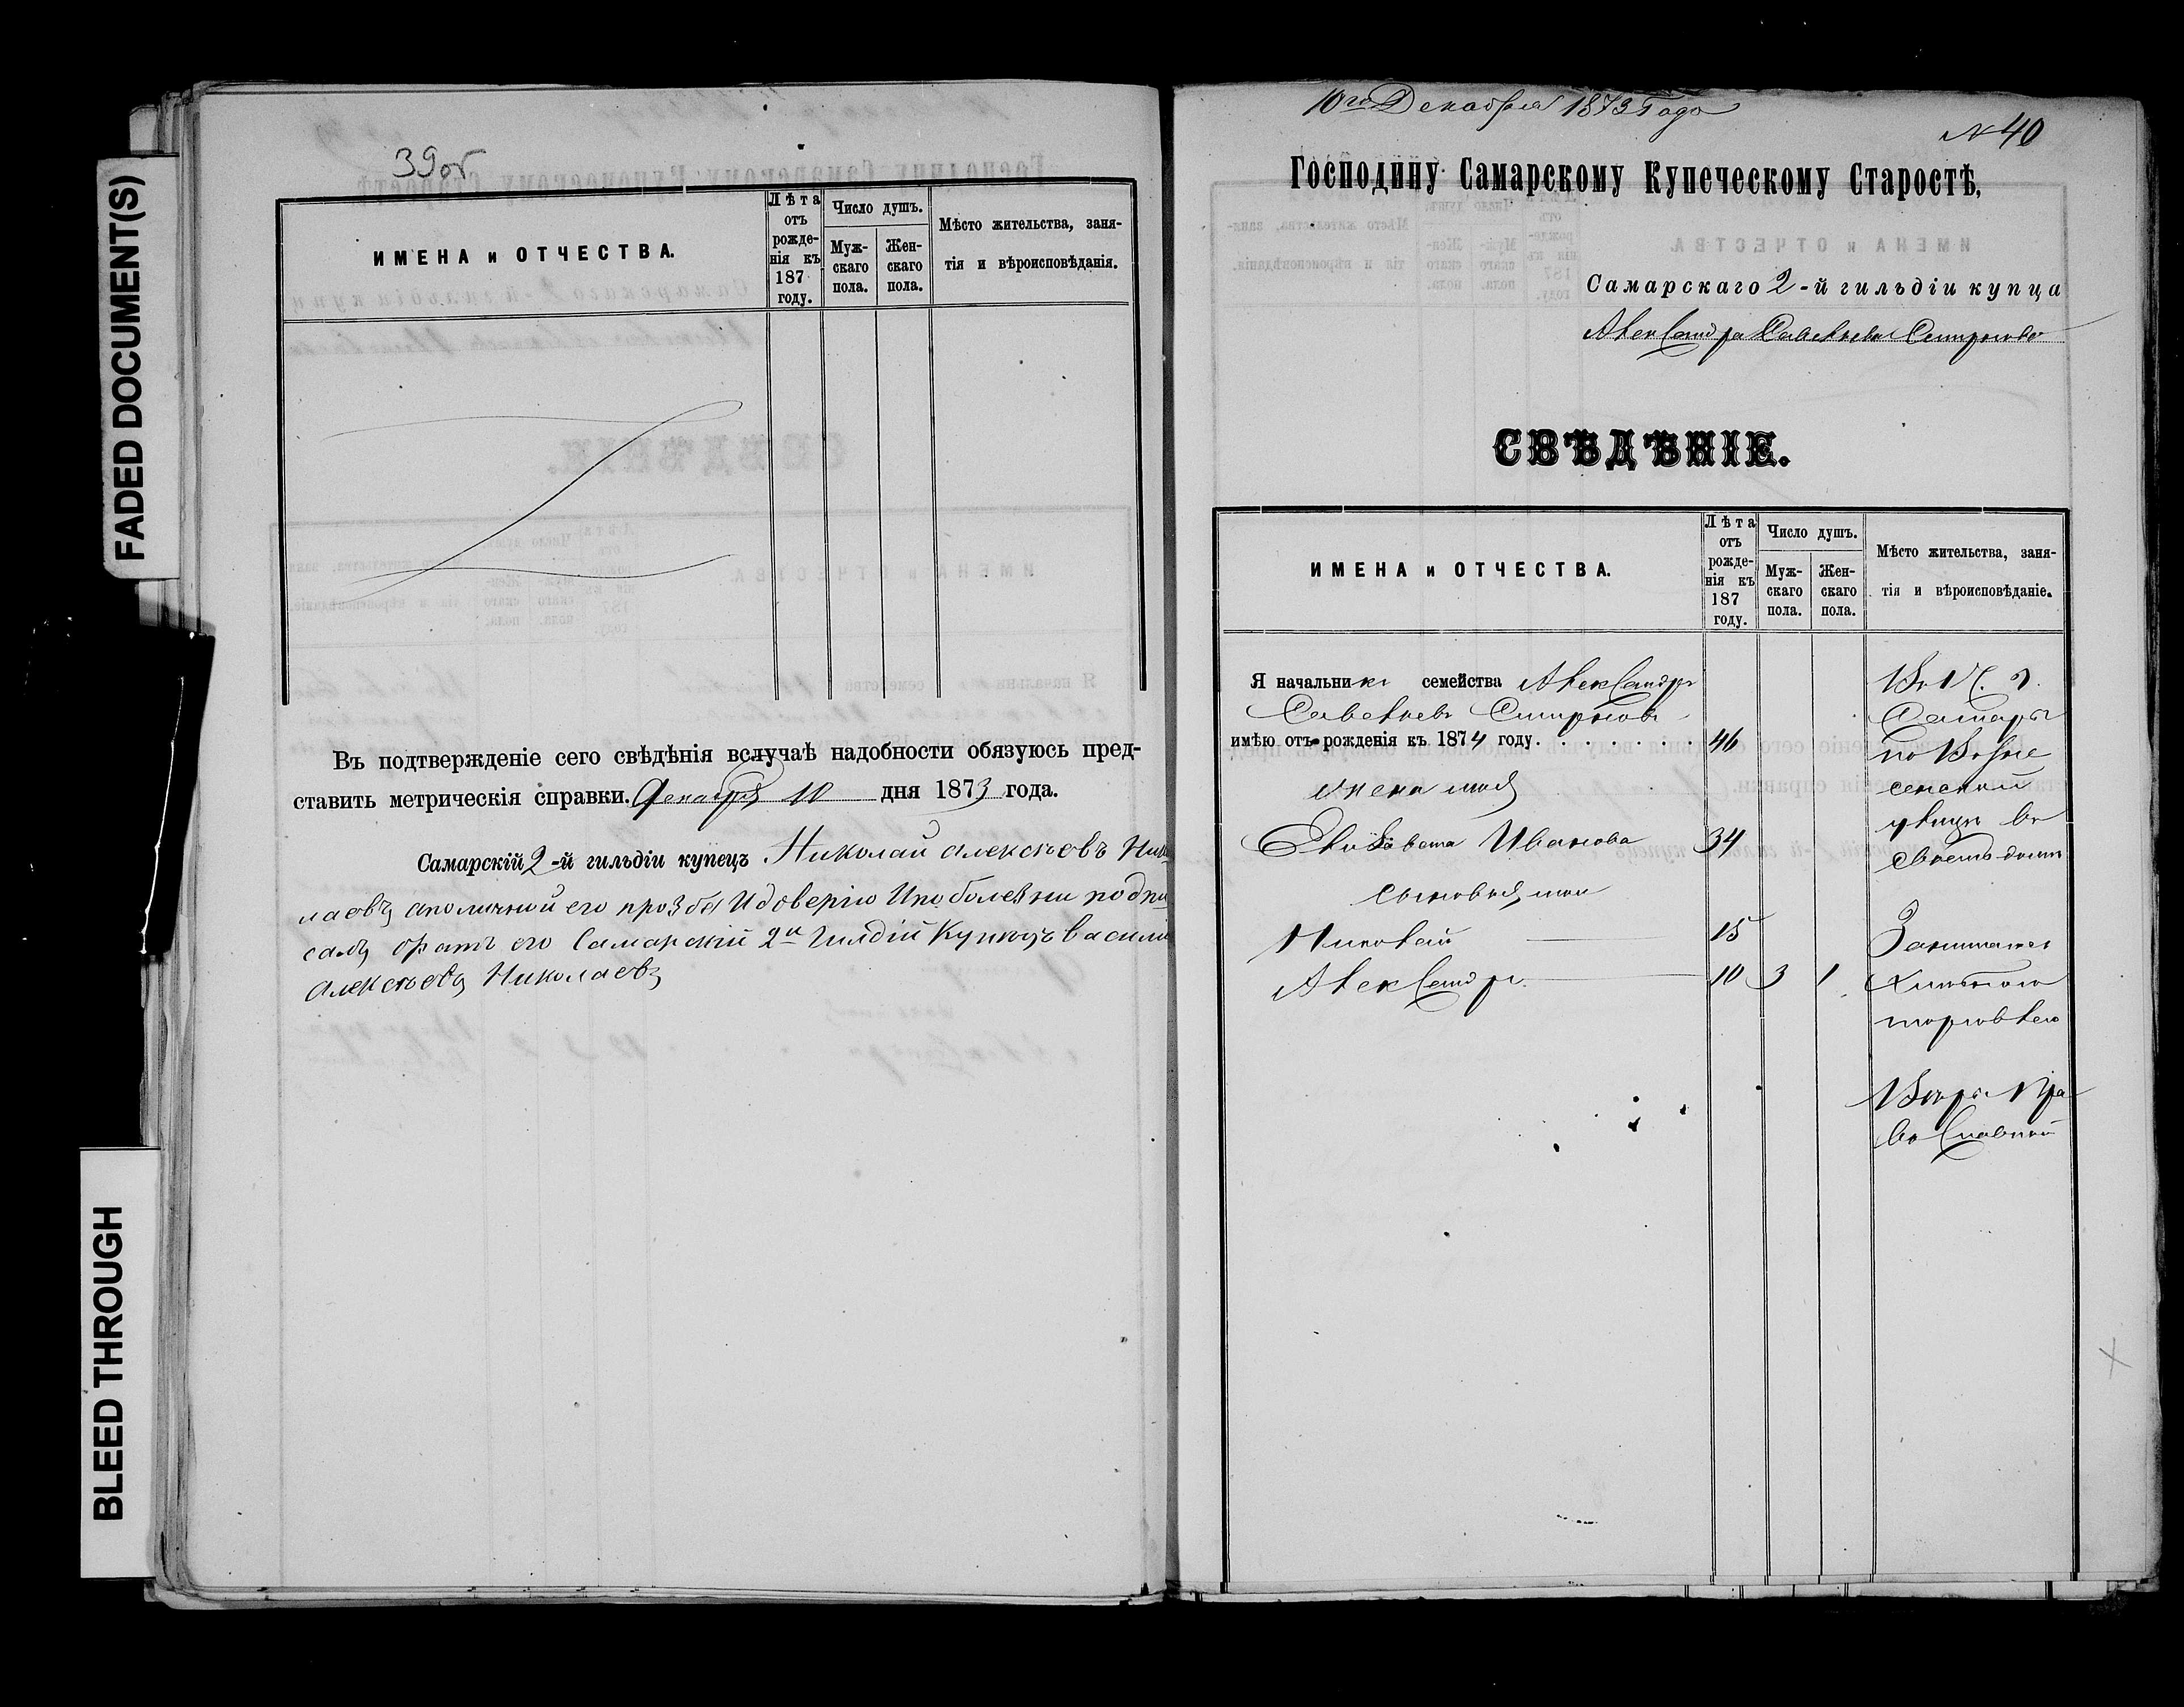 FADED DOCUMENT(S)
BLEED THROUGH
39об
ИМЕНА и ОТЧЕСТВА.
Лѣта отъ рожде-нія къ 187 году.
Число душъ.
Муж-скаго пола.
Жен-скаго пола.
Мѣсто жительства, заня-
тія и вѣроисповѣданія.
Въ подтвержденіе сего свѣдѣнія вслучаѣ надобности обязуюсь пред-
ставить метрическія справки. Декабря 10 дня 1873 года.
Самарскій 2-й гильдіи купецъ Николай алексѣевъ Нико
лаевъ аполичной его прозбѣ Идоверію Ипоболезни подпи
салъ братъ его Самарскій 2й Гилдій Купецъ васили
алексѣевъ Николаевъ
10го Декабря 1873 Года
N 40
Господину Самарскому Купеческому Старостѣ,
Самарскаго 2-й гильдіи купца
Александра Савельева Смирнова
СВѢДѢНІЕ.
ИМЕНА и ОТЧЕСТВА.
Лѣта отъ рожде-нія къ 187 году.
Число душъ.
Муж-скаго пола.
Жен-скаго пола.
Мѣсто жительства, заня-
тія и вѣроисповѣданіе.
Я начальникъ семейства Александръ
Савельевъ Смирновъ
имѣю отъ рожденія къ 1874 году. 46
жена моя
Елизавета Иванова 34
сыновья мои
Николай 15
Александръ 10 3 1
Въ г.
Самары
по Возне
сенской
улицѣ въ
своемъ домѣ
Занимаюсь
хлѣбною
торговлею
Вѣры Пра
вославной